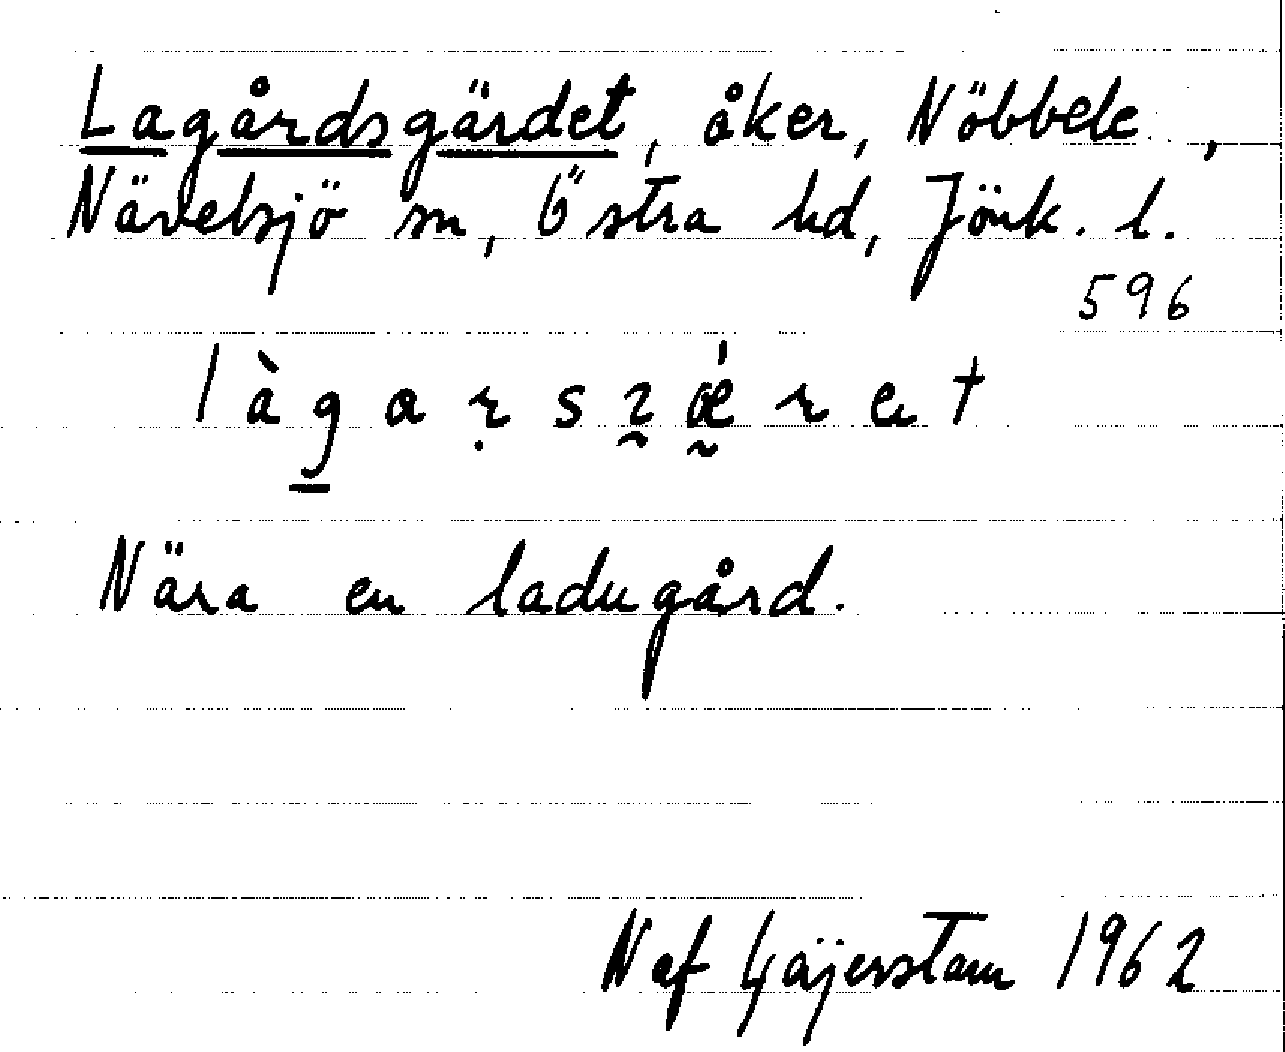 Lagårdsgärdet, åker, Nöbbele,
Nävelsjö sn, Östra hd, Jönk. l.
596
Nära en ladugård.
N af Gäjerstam 1962